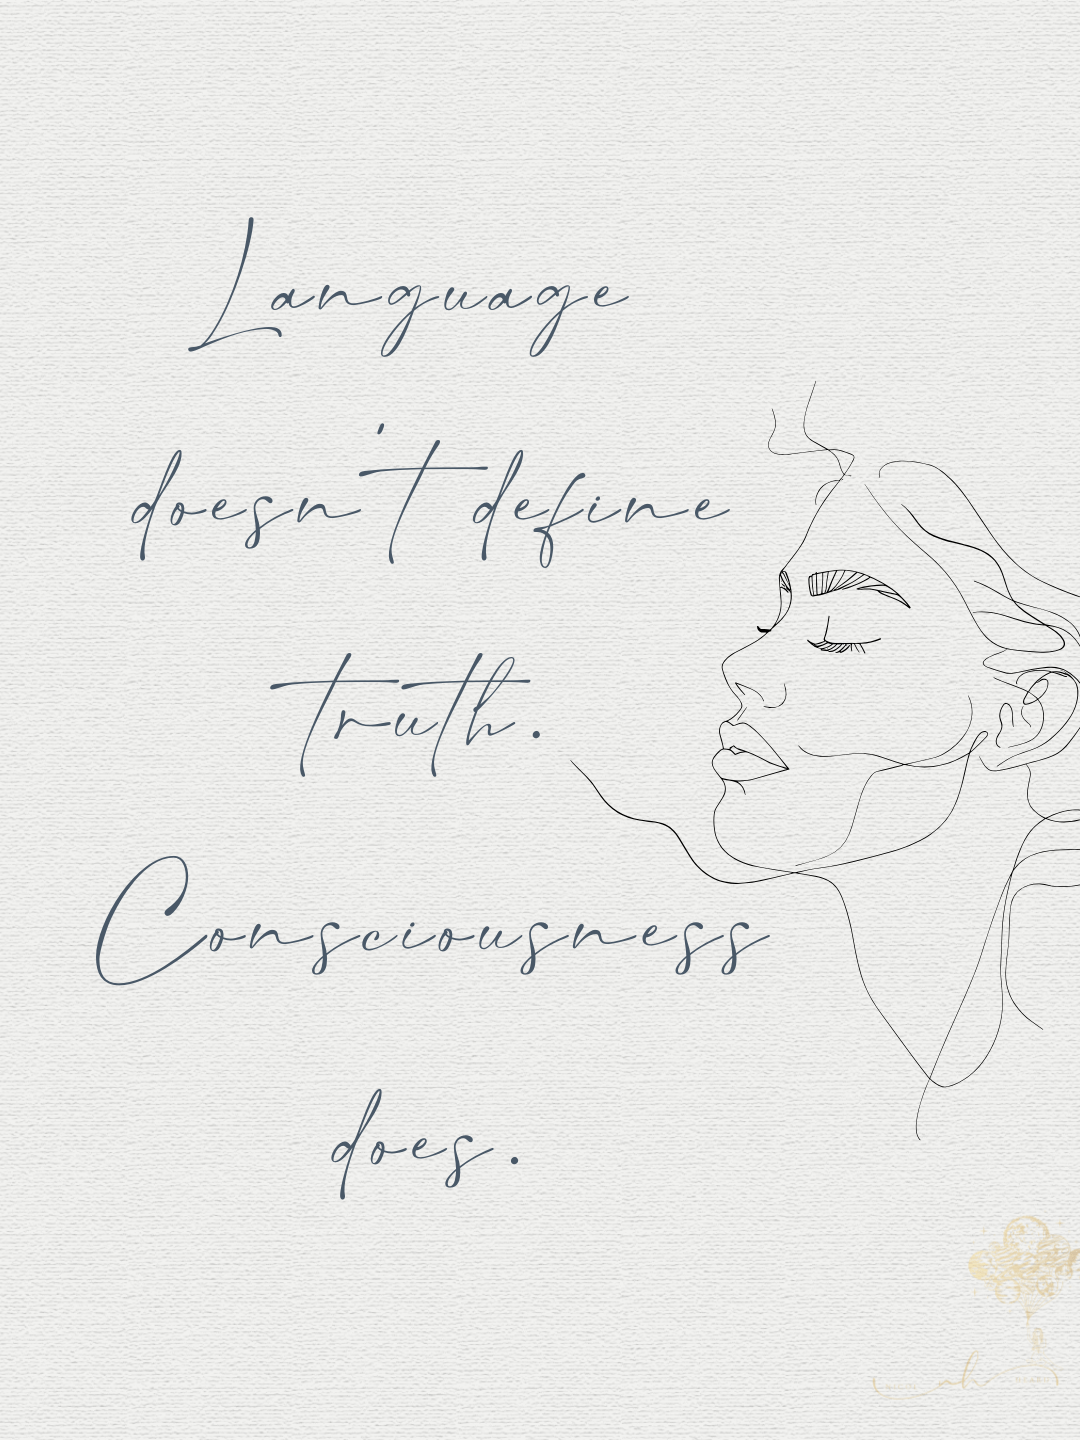 Language
doesn't define
truth.
Consciousness
does.